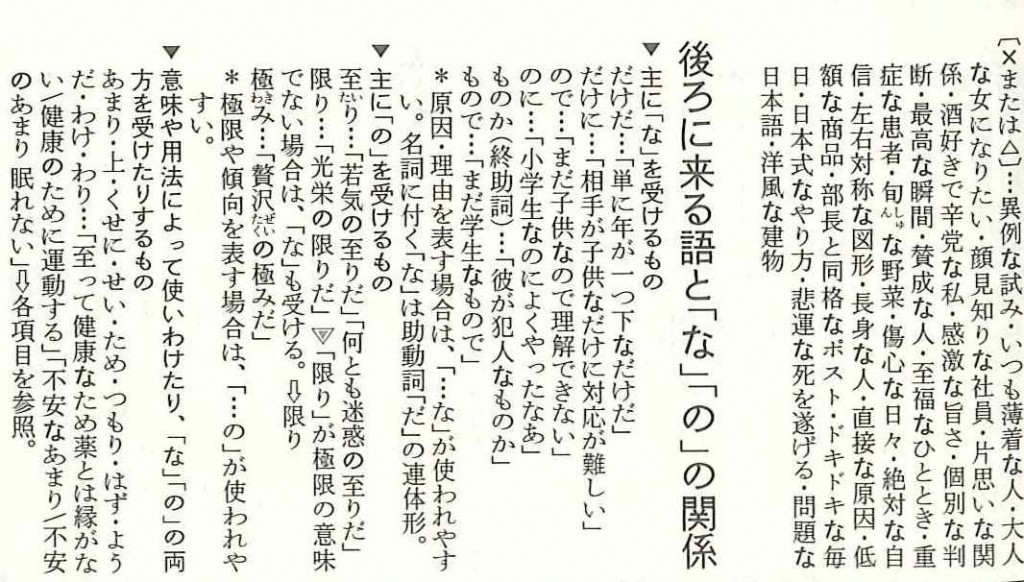 〔×または△〕…異例な試み・いつも薄着な人・大人
な女になりたい・顔見知りな社員・片思いな関
係・酒好きで辛党な私・感激な旨さ・個別な判
断・最高な瞬間・賛成な人・至福なひととき・重
症な患者・旬しゅんな野菜・傷心な日々・絶対な自
信・左右対称な図形・長身な人・直接な原因・低
額な商品・部長と同格なポスト・ドキドキな毎
日・日本式なやり方・悲運な死を遂げる・問題な
日本語・洋風な建物
後ろに来る語と「な」「の」の関係
▼主に「な」を受けるもの
だけだ…「単に年が一つ下なだけだ」
だけに…「相手が子供なだけに対応が難しい」
ので…「まだ子供なので理解できない」
のに…「小学生なのによくやったなあ」
ものか(終助詞)…「彼が犯人なものか」
もので…「まだ学生なもので」
*原因・理由を表す場合は、「…な」が使われやす
い。名詞に付く「な」は助動詞「だ」の連体形。
▼主に「の」を受けるもの
至たいり…「若気の至りだ」「何とも迷惑の至りだ」
限り…「光栄の限りだ」▽「限り」が極限の意味
でない場合は、「な」も受ける。⇩限り
極きわみ…「贅沢ぜいたくの極みだ」
*極限や傾向を表す場合は、「…の」が使われや
すい。
▼意味や用法によって使いわけたり、「な」「の」の両
方を受けたりするもの
あまり・上・くせに・せい・ため・つもり・はず・よう
だ・わけ・わり…「至って健康なため薬とは縁がな
い/健康のために運動する」「不安なあまり/不安
のあまり眠れない」⇩各項目を参照。